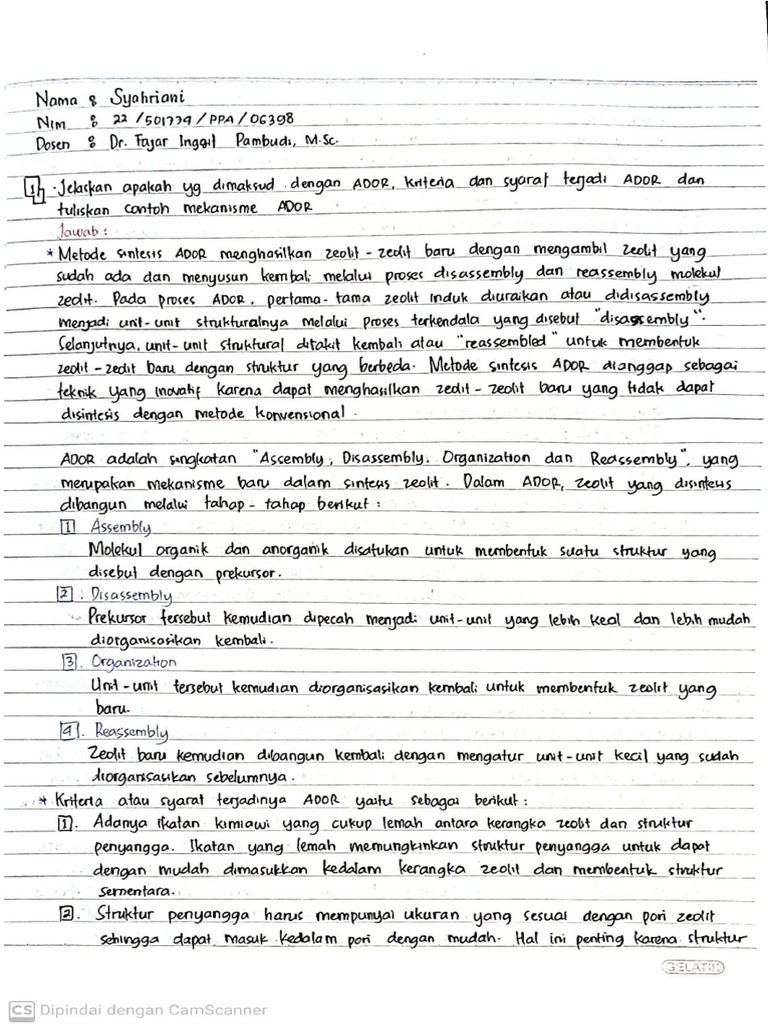 Nama : Syahriani
Nim : 22/501779/PPA/06398
Dosen : Dr. Fajar Inggit Pambudi, M.Sc.
1. Jelaskan apakah yg dimaksud dengan ADOR, kriteria dan syarat terjadi ADOR dan
tuliskan contoh mekanisme ADOR
Jawab :
* Metode sintesis ADOR menghasilkan zeolit-zeolit baru dengan mengambil zeolit yang
sudah ada dan menyusun kembali melalui proses disassembly dan reassembly molekul
zeolit. Pada proses ADOR, pertama-tama zeolit induk diuraikan atau didisassembly
menjadi unit-unit strukturalnya melalui proses terkendala yang disebut "disassembly".
Selanjutnya, unit-unit struktural ditakit kembali atau "reassembled" untuk membentuk
zeolit-zeolit baru dengan struktur yang berbeda. Metode sintesis ADOR dianggap sebagai
teknik yang inovatif karena dapat menghasilkan zeolit-zeolit baru yang tidak dapat
disintesis dengan metode konvensional.
ADOR adalah singkatan "Assembly, Disassembly, Organization dan Reassembly", yang
merupakan mekanisme baru dalam sintesis zeolit. Dalam ADOR, zeolit yang disintesis
dibangun melalui tahap-tahap berikut :
1. Assembly
Molekul organik dan anorganik disatukan untuk membentuk suatu struktur yang
disebut dengan prekursor.
2. Disassembly
Prekursor tersebut kemudian dipecah menjadi unit-unit yang lebih kecil dan lebih mudah
diorganisasikan kembali.
3. Organization
Unit-unit tersebut kemudian diorganisasikan kembali untuk membentuk zeolit yang
baru.
4. Reassembly
Zeolit baru kemudian dibangun kembali dengan mengatur unit-unit kecil yang sudah
diorganisasikan sebelumnya.
* Kriteria atau syarat terjadinya ADOR yaitu sebagai berikut :
1. Adanya ikatan kimiawi yang cukup lemah antara kerangka zeolit dan struktur
penyangga. Ikatan yang lemah memungkinkan struktur penyangga untuk dapat
dengan mudah dimasukkan kedalam kerangka zeolit dan membentuk struktur
sementara.
2. Struktur penyangga harus mempunyai ukuran yang sesuai dengan pori zeolit
sehingga dapat masuk kedalam pori dengan mudah. Hal ini penting karena struktur
GELATIK
CS Dipindai dengan CamScanner